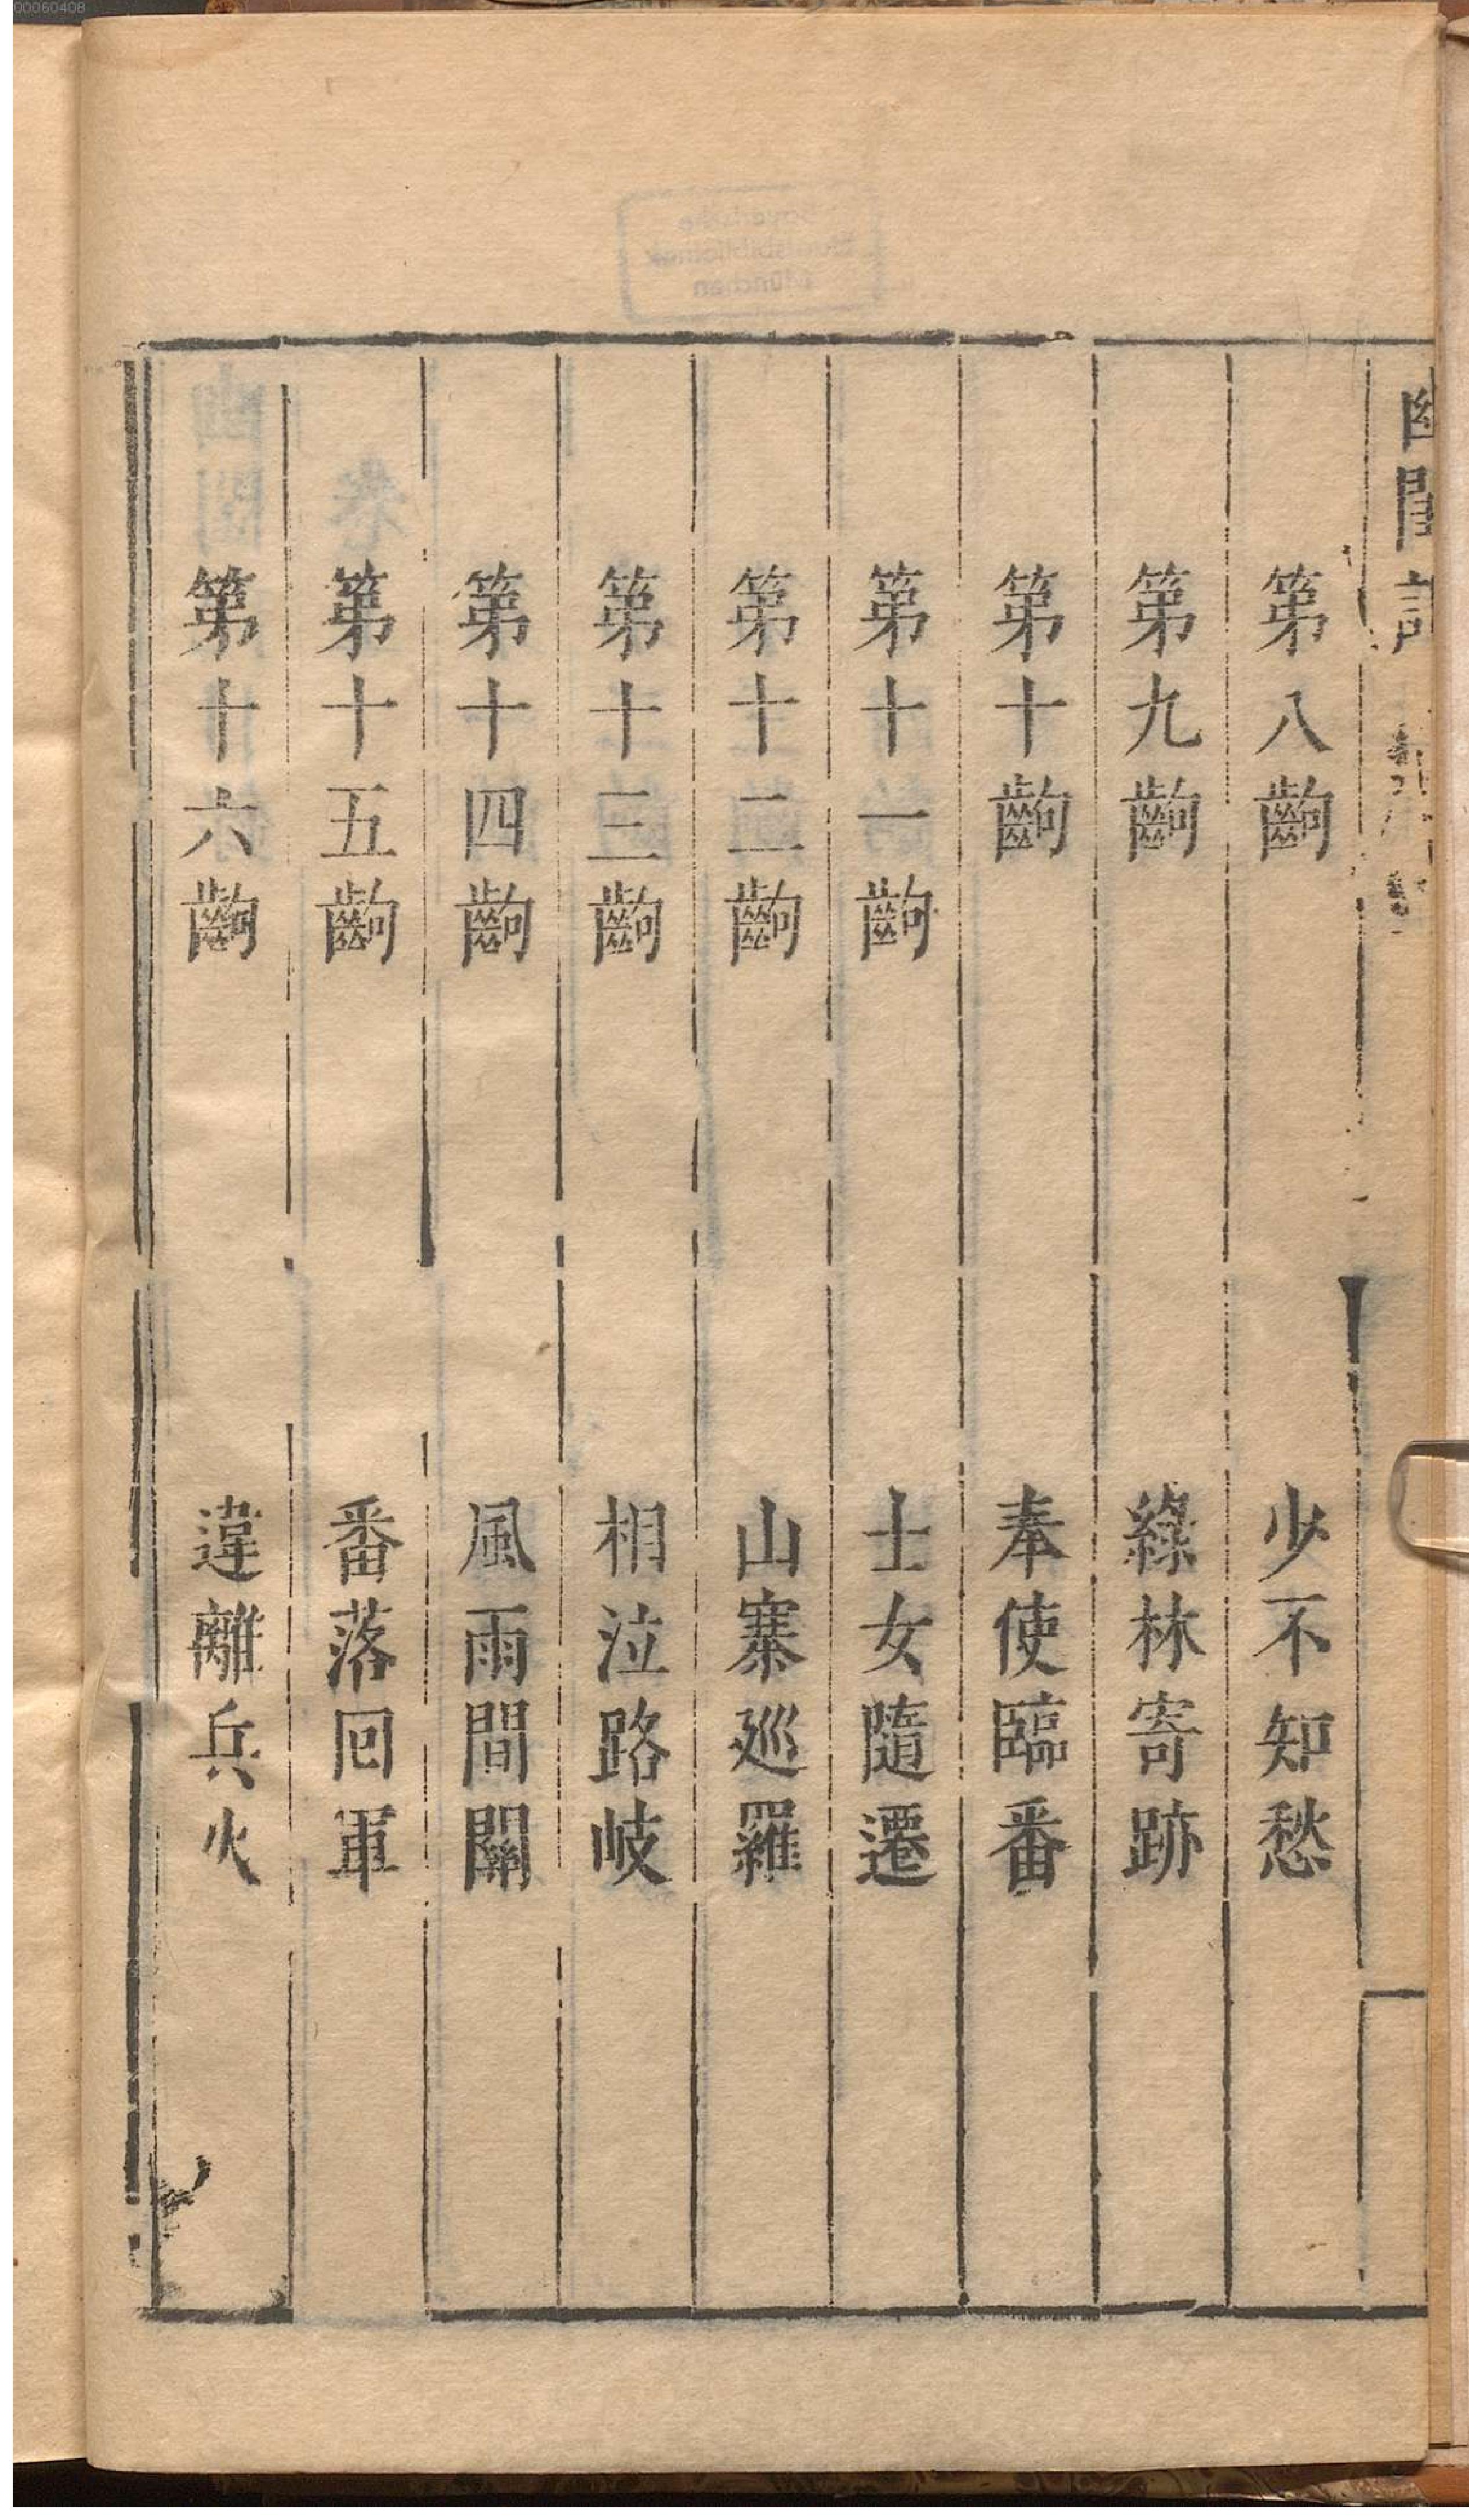 00060408
幽閨記
第八齣 少不知愁
第九齣 綠林寄跡
第十齣 奉使臨番
第十一齣 士女隨遷
第十二齣 山寨廵羅
第十三齣 相泣路岐
第十四齣 風雨間關
第十五齣 番落回軍
第十六齣 違離兵火